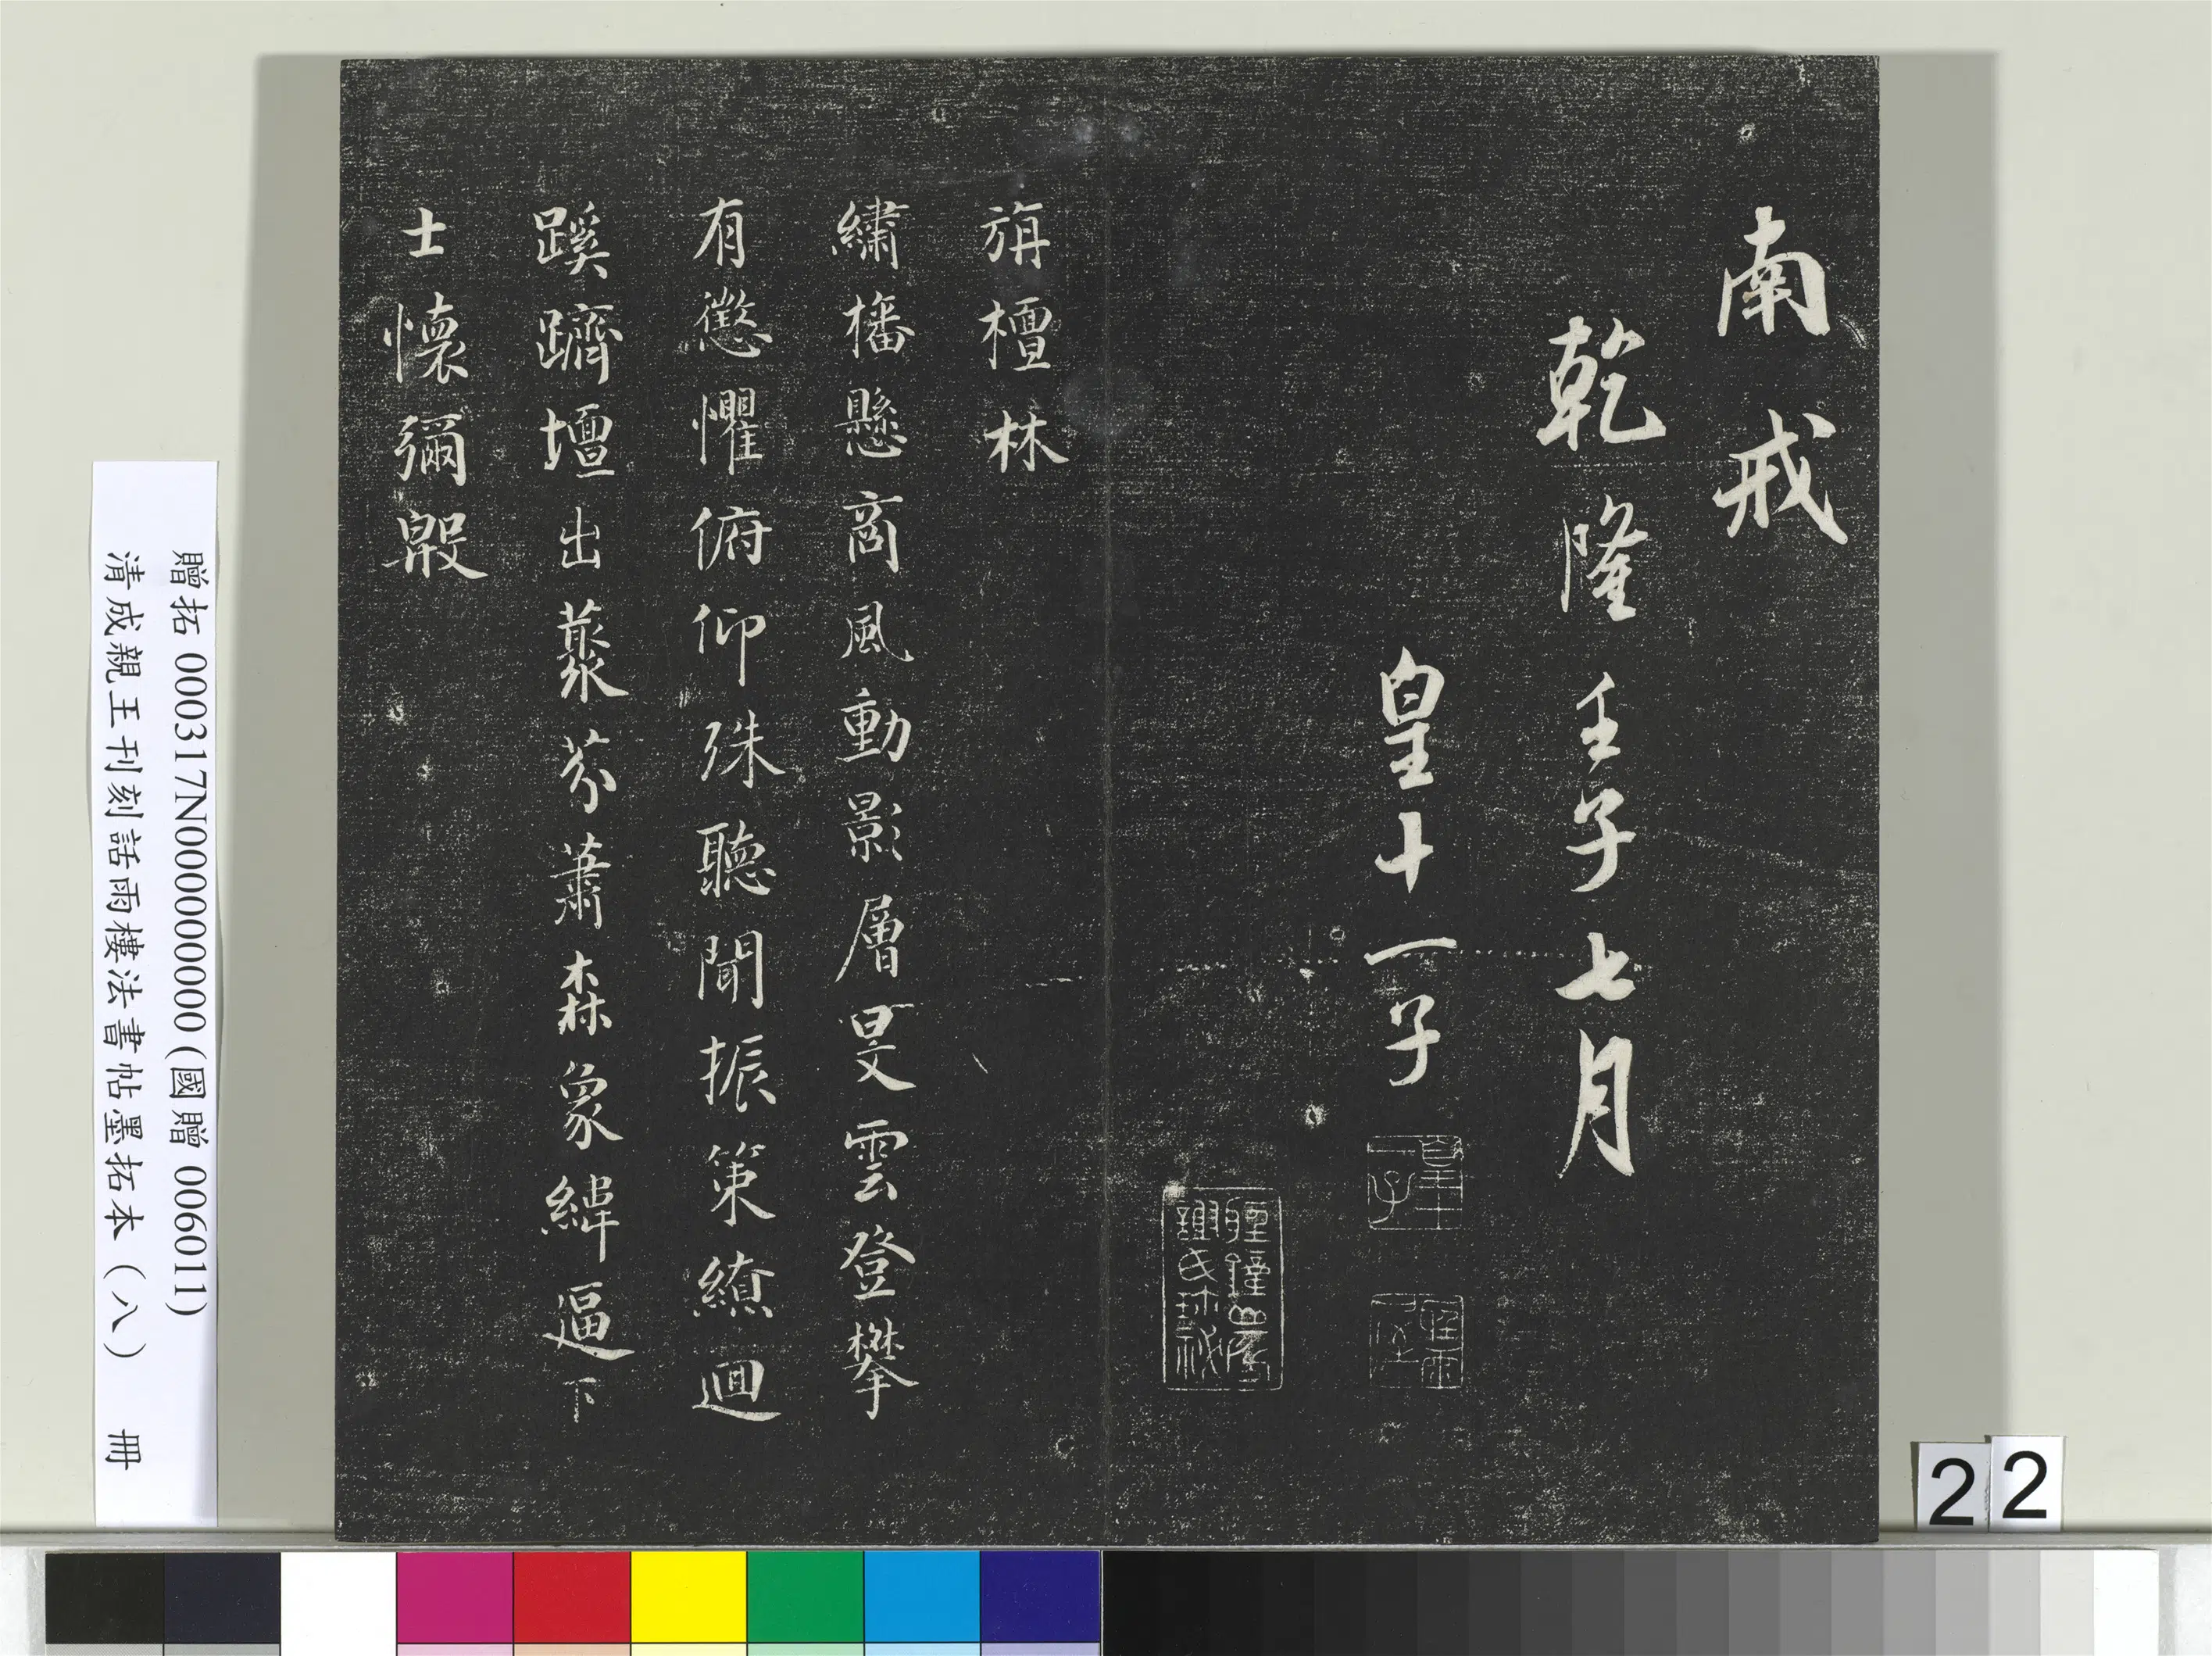 南戒
乾隆壬子七月
皇十一子
旃檀林
繡幡懸商風動影層旻雲登攀
有懲懼俯仰殊聽聞振策繚迴
蹊躋壇出藂芬蕭森象緯逼下
士懷彌殷
贈拓 000317N000000000(國贈 006011)
清成親王刊刻話雨樓法書帖墨拓本(八) 冊
22